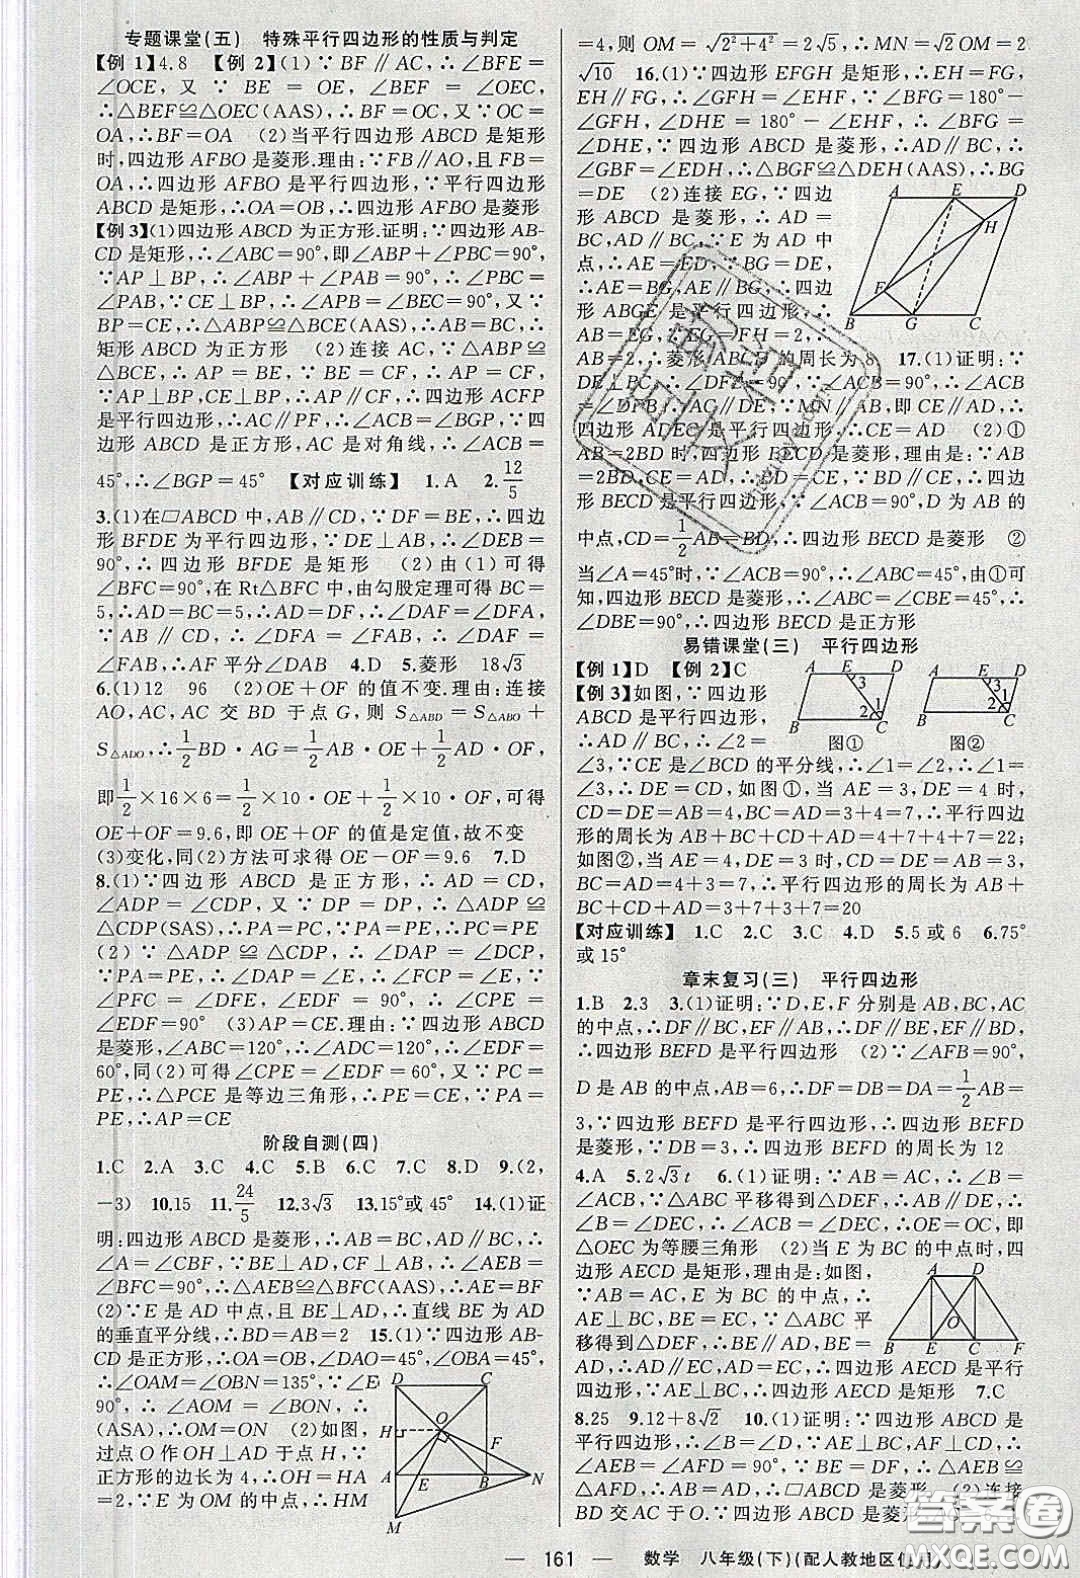 专题课堂(五)　特殊平行四边形的性质与判定
【例1】4.8　【例2】(1)∵BF∥AC,∴∠BFE=
∠OCE,又∵BE=OE,∠BEF=∠OEC,
∴△BEF≌△OEC(AAS),∴BF=OC,又∵OC=
OA,∴BF=OA　(2)当平行四边形ABCD是矩形
时,四边形AFBO是菱形.理由:∵FB∥AO,且FB=
OA,∴四边形AFBO是平行四边形,∵平行四边形
ABCD是矩形,∴OA=OB,∴四边形AFBO是菱形
【例3】(1)四边形ABCD为正方形.证明:∵四边形AB-
CD是矩形,∴∠ABC=90°,即∠ABP+∠PBC=90°,
∵AP⊥BP,∴∠ABP+∠PAB=90°,∴∠PBC=
∠PAB,∵CE⊥BP,∴∠APB=∠BEC=90°,又∵
BP=CE,∴△ABP≌△BCE(AAS),∴AB=BC,∴
矩形ABCD为正方形　(2)连接AC,∵△ABP≌
△BCE,∴AP=BE,∵BE=CF,∴AP=CF,
∵AP⊥BP,CE⊥BP,∴AP∥CF,∴四边形ACFP
是平行四边形,∴AC∥PF,∴∠ACB=∠BGP,∵四
边形ABCD是正方形,AC是对角线,∴∠ACB=
45°,∴∠BGP=45°　【对应训练】　1.A　2.12/5
3.(1)在▱ABCD中,AB∥CD,∵DF=BE,∴四边
形BFDE为平行四边形,∵DE⊥AB,∴∠DEB=
90°,∴四边形BFDE是矩形　(2)由(1)可得
∠BFC=90°,在Rt△BFC中,由勾股定理可得BC=
5,∴AD=BC=5,∴AD=DF,∴∠DAF=∠DFA,
∵AB∥CD,∴∠DFA=∠FAB,∴∠DAF=
∠FAB,∴AF平分∠DAB　4.D　5.菱形　18√3
6.(1)12　96　(2)OE+OF的值不变.理由:连接
AO,AC,AC交BD于点G,则S△ABD=S△ABO+
S△ADO,∴1/2BD·AG=1/2AB·OE+1/2AD·OF,
即1/2×16×6=1/2×10·OE+1/2×10·OF,可得
OE+OF=9.6,即OE+OF的值是定值,故不变
(3)变化,同(2)方法可求得OE-OF=9.6　7.D
8.(1)∵四边形ABCD是正方形,∴AD=CD,
∠ADP=∠CDP,又∵DP=DP,∴△ADP≌
△CDP(SAS),∴PA=PC,∵PA=PE,∴PC=PE
(2)∵△ADP≌△CDP,∴∠DAP=∠DCP,
∵PA=PE,∴∠DAP=∠E,∴∠DCP=∠E,∵
∠PFC=∠DFE,∴∠CPE=
∠EDF=90°　(3)AP=CE.理由:∵四边形ABCD
是菱形,∠ABC=120°,∴∠ADC=120°,∴∠EDF=
60°,同(2)可得∠CPE=∠EDF=60°,又∵PC=
PE,∴△PCE是等边三角形,∴PE=CE,∵PA=
PE,∴AP=CE
阶段自测(四)
1.C　2.A　3.C　4.C　5.B　6.C　7.C　8.D　9.(2,
-3)　10.15　11.24/5　12.3√3　13.15°或45°　14.(1)证
明:四边形ABCD是菱形,∴AB=BC,AD∥BC,∴
∠A=∠CBF,∵BE⊥AD,BF⊥CD,∴∠AEB=
∠BFC=90°,∴△AEB≌△BFC(AAS),∴AE=BF
(2)∵E是AD中点,且BE⊥AD,∴直线BE为AD
的垂直平分线,∴BD=AB=2　15.(1)∵四边形AB-
CD是正方形,∴OA=OB,∠DAO=45°,∠OBA=45°,
∴∠OAM=∠OBN=135°,∵∠EOF=
90°,∴∠AOM=∠BON,∴△OAM≌△OBN
(ASA),∴OM=ON　(2)如图,
过点O作OH⊥AD于点H,∵
正方形的边长为4,∴OH=HA
=2,∵E为OM的中点,∴HM
D
C
H
O
F
A
E
B
N
M
=4,则OM=√2²+4²=2√5,∴MN=√2OM=2
√10　16.(1)∵四边形EFGH是矩形,∴EH=FG,
EH∥FG,∴∠GFH=∠EHF,∵∠BFG=180°-
∠GFH,∠DHE=180°-∠EHF,∴∠BFG=
∠DHE,∵四边形ABCD是菱形,∴AD∥BC,∴
∠GBF=∠EDH,∴△BGF≌△DEH(AAS),∴BG
=DE　(2)连接EG,∵四边
形ABCD是菱形,∴AD=
BC,AD∥BC,∵E为AD中
点,∴AE=ED,∵BG=DE,
∴AE=BG,AE∥BG,∴四边形
ABGE是平行四边形,∴
AB=EG,∵EG=FH=2,∴
AB=2,∴菱形ABCD的周长为8　17.(1)证明:∵
DE⊥BC,∴∠DFB=90°,∵∠ACB=90°,∴∠ACB=
∠DFB,∴AC∥DE,∵MN∥AB,即CE∥AD,∴
四边形ADEC是平行四边形,∴CE=AD　(2)①
AB=2BD时,四边形BECD是菱形,理由是:∵AB=
2BD,CE=AD,∴CE=BD,∵CE∥BD,∴四边
形BECD是平行四边形,∵∠ACB=90°,D为AB的
中点,CD=1/2AB=BD,∴四边形BECD是菱形　②
当∠A=45°时,∵∠ACB=90°,∴∠ABC=45°,由①可
知,四边形BECD是菱形,∴∠ABC=∠CBE=45°,∴
∠DBE=90°,∴四边形BECD是正方形
A
E
D
H
F
B
G
C
易错课堂(三)　平行四边形
【例1】D　【例2】C
【例3】如图,∵四边形
ABCD是平行四边形,
∴AD∥BC,∴∠2=
∠3,∵CE是∠BCD的平分线,∴∠1=∠2,∴∠1=
∠3,∴DE=CD,如图①,当AE=3,DE=4时,
CD=DE=AB=4,BC=AD=7,∴平行四边
形的周长为AB+BC+CD+AD=4+7+4+7=22;
如图②,当AE=4,DE=3时,CD=DE=AB=3,
BC=AD=7,∴平行四边形的周长为AB+
BC+CD+AD=3+7+3+7=20
A E D
3
1
2
B C
图①
A E D
3
1
2
B C
图②
【对应训练】　1.C　2.C　3.C　4.D　5.5或6　6.75°
或15°
章末复习(三)　平行四边形
1.B　2.3　3.(1)证明:∵D,E,F分别是AB,BC,AC
的中点,∴DF∥BC,EF∥AB,∴DF∥BE,EF∥BD,
∴四边形BEFD是平行四边形　(2)∵∠AFB=90°,
D是AB的中点,AB=6,∴DF=DB=DA=1/2AB=
3,∵四边形BEFD是平行四边形,∴四边形BEFD
是菱形,∵DB=3,∴四边形BEFD的周长为12
4.A　5.2√3t　6.(1)证明:∵AB=AC,∴∠B=
∠ACB,∵△ABC平移得到△DEF,∴AB∥DE,∴
∠B=∠DEC,∴∠ACB=∠DEC,∴OE=OC,即
△OEC为等腰三角形　(2)当E为BC的中点时,四
边形AECD是矩形,理由是:如图,
∵AB=AC,E为BC的中点,∴
AE⊥BC,BE=EC,∵△ABC平
移得到△DEF,∴BE∥AD,BE=
AD,∴AD∥EC,AD=EC,∴四边形AECD是平行
四边形,∵AE⊥BC,∴四边形AECD是矩形　7.C
A D
O
B E C F
8.25　9.12+8√2　10.(1)证明:∵四边形ABCD是
平行四边形,∴∠B=∠D,∵AE⊥BC,AF⊥CD,∴
∠AEB=∠AFD=90°,∵BE=DF,∴△AEB≌
△AFD(ASA),∴AB=AD,∴▱ABCD是菱形　(2)连接
BD交AC于O.∵四边形ABCD是菱形,
— 161 —　数学　八年级(下)(配人教地区使用)
答案圈
MXQE.COM